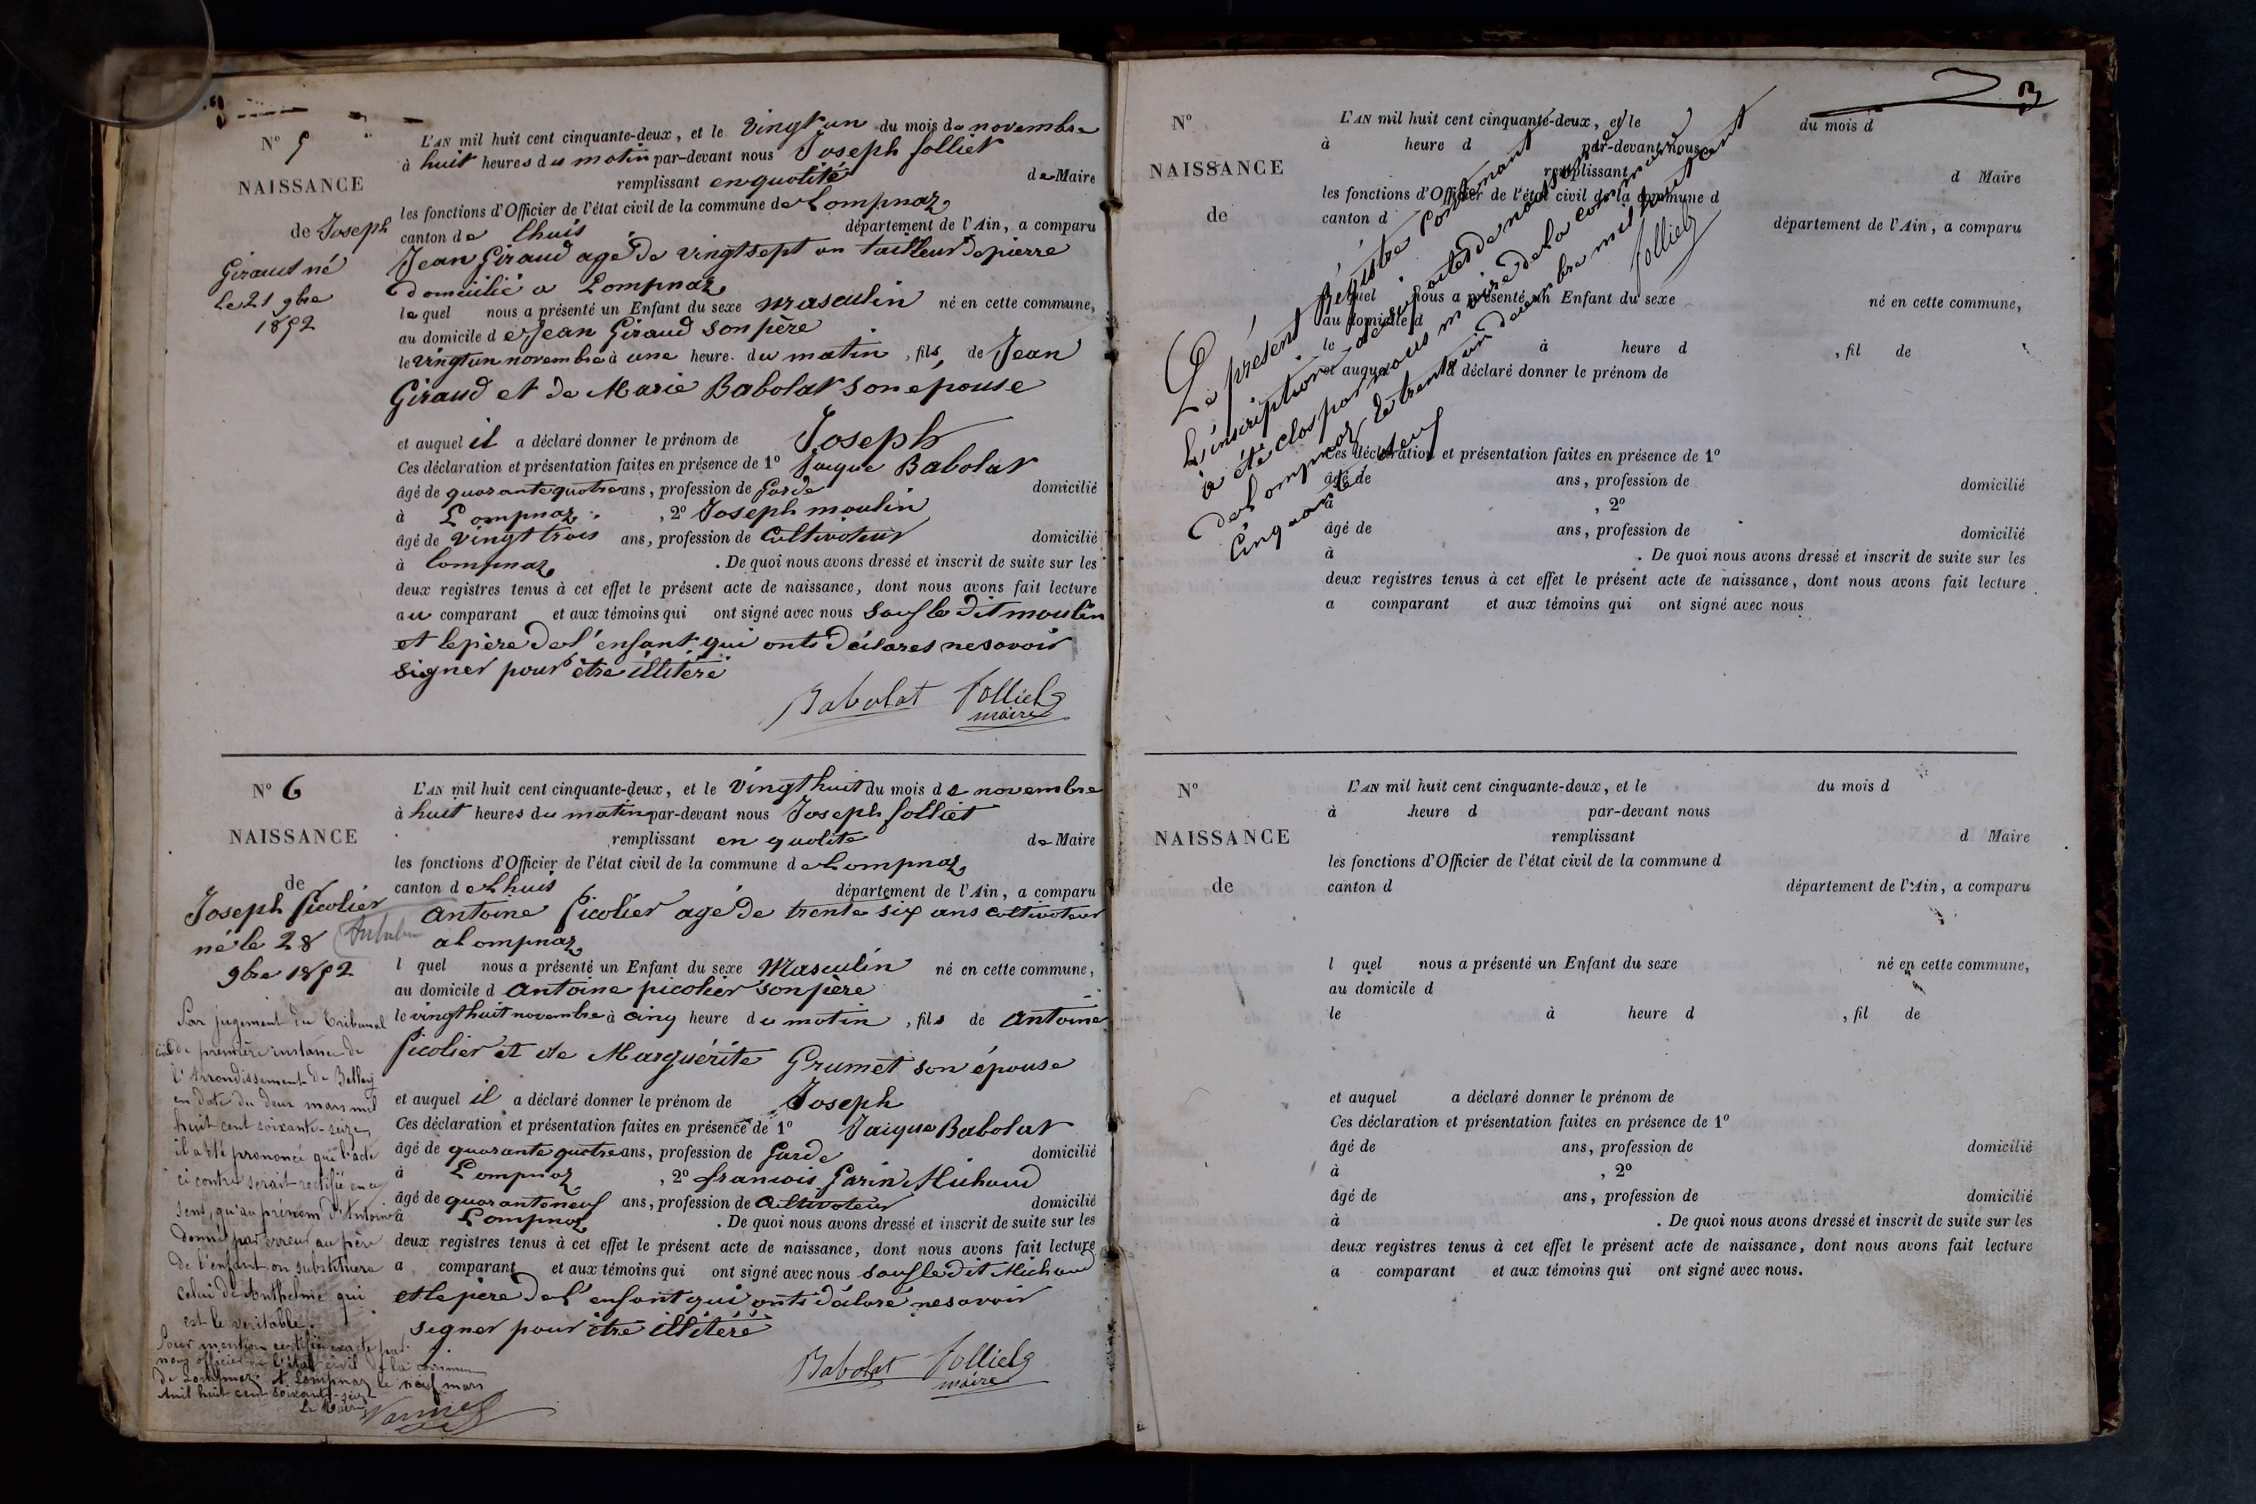 N° 5
NAISSANCE
de Joseph
Giraud né
Le 21 9bre
1852
L'AN mil huit cent cinquante-deux, et le vingt un du mois de novembre
à huit heures du matin par-devant nous Joseph folliet
remplissant en qualité de Maire
les fonctions d'Officier de l'état civil de la commune de Lompnaz
canton de Lhuis département de l'Ain, a comparu
Jean Giraud agé de vingt sept an tailleur de pierre
domicilié a Lompnaz
le quel nous a présenté un Enfant du sexe masculin né en cette commune,
au domicile de Jean Giraud son père
le vingt un novembre à une heure du matin, fils de Jean
Giraud et de Marie Babolat son epouse
et auquel il a déclaré donner le prénom de Joseph
Ces déclaration et présentation faites en présence de 1° Jacque Babolat
âgé de quarante quatre ans, profession de Garde domicilié
à Lompnaz, 2° Joseph moulin
âgé de vingt trois ans, profession de Cultivateur domicilié
à Lompnaz. De quoi nous avons dressé et inscrit de suite sur les
deux registres tenus à cet effet le présent acte de naissance, dont nous avons fait lecture
au comparant et aux témoins qui ont signé avec nous sauf le dit moulin
et le père de l'enfant qui onts déclares ne savoir
signer pour être illitéré
Babolat folliet
maire
N° 6
NAISSANCE
de
Joseph Picolier
né le 28
9bre 1852
Par jugement du Tribunal
civil de première instance de
l'Arrondissement de Belley
en date du deux mars mil
huit cent soixante-seize,
il a été prononcé que l'acte
ci contre serait rectifié en ce
sens, qu'au prénom d'Antoine
donné par erreur au père
de l'enfant on substituera
celui de Anthelme qui
est le véritable.
Pour mention certifiée exacte par
nous officier de l'état civil de la commune
de Lompnaz. A Lompnaz le neuf mars
mil huit cent soixante-seize
Le Maire
L'AN mil huit cent cinquante-deux, et le vingt huit du mois de novembre
à huit heures du matin par-devant nous Joseph folliet
remplissant en qualité de Maire
les fonctions d'Officier de l'état civil de la commune de Lompnaz
canton de Lhuis département de l'Ain, a comparu
antoine Picolier agé de trente six ans cultivateur
a Lompnaz
l quel nous a présenté un Enfant du sexe Masculin né en cette commune,
au domicile d antoine picolier son père
le vingt huit novembre à cinq heure du matin, fils de antoine
Picolier et de Marguérite Grumet son épouse
et auquel il a déclaré donner le prénom de Joseph
Ces déclaration et présentation faites en présence de 1° Jacque Babolat
âgé de quarante quatre ans, profession de Garde domicilié
à Lompnaz, 2° francois Garin Michaud
âgé de quarante neuf ans, profession de Cultivateur domicilié
à Lompnaz. De quoi nous avons dressé et inscrit de suite sur les
deux registres tenus à cet effet le présent acte de naissance, dont nous avons fait lecture
a comparant et aux témoins qui ont signé avec nous sauf le dit Michaud
et le père de l'enfant qui onts déclaré ne savoir
signer pour être illitéré
Babolat folliet
maire
3
N°
NAISSANCE
de
L'AN mil huit cent cinquante-deux, et le du mois d
à heure d par-devant nous
remplissant d Maire
les fonctions d'Officier de l'état civil de la commune d
canton d département de l'Ain, a comparu
l quel nous a présenté un Enfant du sexe né en cette commune,
au domicile d
le à heure d , fil de
et auquel a déclaré donner le prénom de
Ces déclaration et présentation faites en présence de 1°
âgé de ans, profession de domicilié
à , 2°
âgé de ans, profession de domicilié
à . De quoi nous avons dressé et inscrit de suite sur les
deux registres tenus à cet effet le présent acte de naissance, dont nous avons fait lecture
a comparant et aux témoins qui ont signé avec nous
Le présent Régistre contenant
L'inscription de six actes de naissance
à été clos par nous maire de la commune
de Lompnaz Le trente un decembre mil huit cent
Cinquante deux
folliet
N°
NAISSANCE
de
L'AN mil huit cent cinquante-deux, et le du mois d
à heure d par-devant nous
remplissant d Maire
les fonctions d'Officier de l'état civil de la commune d
canton d département de l'Ain, a comparu
l quel nous a présenté un Enfant du sexe né en cette commune,
au domicile d
le à heure d , fil de
et auquel a déclaré donner le prénom de
Ces déclaration et présentation faites en présence de 1°
âgé de ans, profession de domicilié
à , 2°
âgé de ans, profession de domicilié
à . De quoi nous avons dressé et inscrit de suite sur les
deux registres tenus à cet effet le présent acte de naissance, dont nous avons fait lecture
a comparant et aux témoins qui ont signé avec nous.